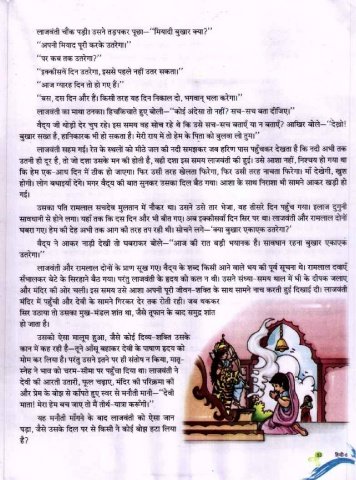 लाजवंती चौंक पड़ी। उसने तड़पकर पूछा—‘‘मियादी बुखार क्या?’’
‘‘अपनी मियाद पूरी करके उतरेगा।’’
‘‘पर कब तक उतरेगा?’’
‘‘इक्कीसवें दिन उतरेगा, इससे पहले नहीं उतर सकता।’’
‘‘आज ग्यारह दिन तो हो गए हैं।’’
‘‘बस, दस दिन और हैं। किसी तरह यह दिन निकाल दो, भगवान् भला करेगा।’’
लाजवंती का माथा ठनका। हिचकिचाते हुए बोली—‘‘कोई अंदेशा तो नहीं? सच-सच बता दीजिए।’’
वैद्य जी थोड़ी देर चुप रहे। इस समय वह सोच रहे थे कि उसे सच-सच बताएँ या न बताएँ? आखिर बोले—‘‘देखो!
बुखार सख्त है, हानिकारक भी हो सकता है। मेरी राय में तो हेम के पिता को बुलवा लो तुम।’’
लाजवंती सहम गई। रेत के स्थलों को मीठे जल की नदी समझकर जब हरिण पास पहुँचकर देखता है कि नदी अभी तक
उतनी ही दूर है, तो जो दशा उसके मन की होती है, वही दशा इस समय लाजवंती की हुई। उसे आशा नहीं, निश्चय हो गया था
कि हेम एक-आध दिन में ठीक हो जाएगा। फिर उसी तरह खेलता फिरेगा, फिर उसी तरह नाचता फिरेगा। माँ देखेगी, खुश
होगी। लोग बधाइयाँ देंगे। मगर वैद्य की बात सुनकर उसका दिल बैठ गया। आशा के साथ निराशा भी सामने आकर खड़ी हो
गई।
उसका पति रामलाल सचदेव मुलतान में नौकर था। उसने उसे तार भेजा, वह तीसरे दिन पहुँच गया। इलाज दुगुनी
सावधानी से होने लगा। यहाँ तक कि दस दिन और भी बीत गए। अब इक्कीसवाँ दिन सिर पर था। लाजवंती और रामलाल दोनों
घबरा गए। हेम की देह अभी तक आग की तरह तप रही थी। सोचने लगे—‘‘क्या बुखार एकाएक उतरेगा?’’
वैद्य ने आकर नाड़ी देखी तो घबराकर बोले—‘‘आज की रात बड़ी भयानक है। सावधान रहना बुखार एकाएक
उतरेगा।’’
लाजवंती और रामलाल दोनों के प्राण सूख गए। वैद्य के शब्द किसी आने वाले भय की पूर्व सूचना थे। रामलाल दवाएँ
सँभालकर बेटे के सिरहाने बैठ गया। परंतु लाजवंती के हृदय को कल न थी। उसने संध्या-समय थाल में घी के दीपक जलाए
और मंदिर की ओर चली। इस समय उसे आशा अपनी पूरी जीवन-शक्ति के साथ सामने नाचती हुई दिखाई दी। लाजवंती
मंदिर में पहुँची और देवी के सामने गिरकर देर तक रोती रही। जब थककर
सिर उठाया तो उसका मुख-मंडल शांत था, जैसे तूफान के बाद समुद्र शांत
हो जाता है।
उसको ऐसा मालूम हुआ, जैसे कोई दिव्य-शक्ति उसके
कान में कह रही है—तूने आँसू बहाकर देवी के पाषाण हृदय को
मोम कर लिया है। परंतु उसने इतने पर ही संतोष न किया, मातृ-
स्नेह ने भाव को चरम-सीमा पर पहुँचा दिया था। लाजवंती ने
देवी की आरती उतारी, फूल चढ़ाए, मंदिर की परिक्रमा की
और प्रेम के बोझ से काँपते हुए स्वर से मनौती मानी—‘‘देवी
माता! मेरा हेम बच जाए तो मैं तीर्थ-यात्रा करूँगी।’’
यह मनौती माँगने के बाद लाजवंती को ऐसा जान
पड़ा, जैसे उसके दिल पर से किसी ने कोई बोझ हटा लिया
है?
हिन्दी-8